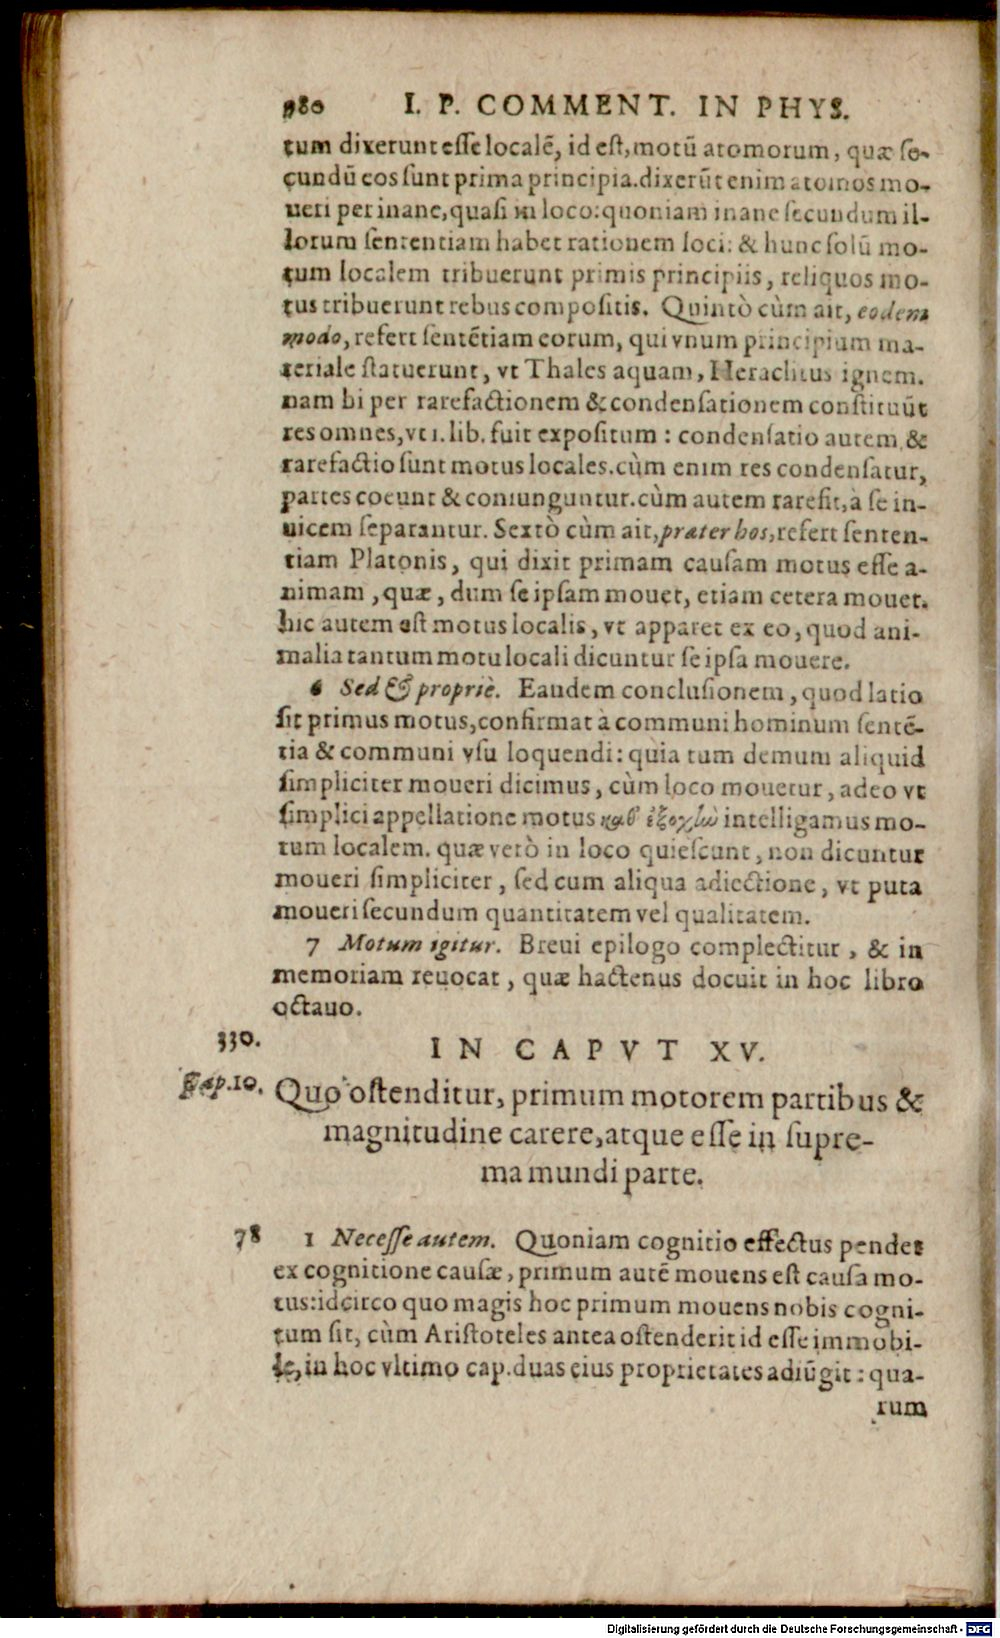 980 I. P. COMMENT. IN PHYS.
tum dixerunt esse localē, id est, motū atomorum, quæ se-
cundū eos sunt prima principia. dixerūt enim atomos mo-
ueri per inane, quasi in loco: quoniam inane secundum il-
lorum sententiam habet rationem loci: & hunc solū mo-
tum localem tribuerunt primis principiis, reliquos mo-
tus tribuerunt rebus compositis. Quintò cùm ait, eodem
modo, refert sentētiam eorum, qui vnum principium ma-
teriale statuerunt, vt Thales aquam, Heraclitus ignem.
nam hi per rarefactionem & condensationem constituūt
res omnes, vt 1. lib. fuit expositum: condensatio autem &
rarefactio sunt motus locales. cùm enim res condensatur,
partes coeunt & coniunguntur. cùm autem rarefit, à se in-
uicem separantur. Sextò cùm ait, præter hos, refert senten-
tiam Platonis, qui dixit primam causam motus esse a-
nimam, quæ, dum seipsam mouet, etiam cetera mouet.
hic autem est motus localis, vt apparet ex eo, quod ani-
malia tantum motu locali dicuntur seipsa mouere.
6 Sed & propriè. Eandem conclusionem, quod latio
sit primus motus, confirmat à communi hominum sentē-
tia & communi vsu loquendi: quia tum demum aliquid
simpliciter moueri dicimus, cùm loco mouetur, adeo vt
simplici appellatione motus καθ' ἐξοχὴν intelligamus mo-
tum localem. quæ verò in loco quiescunt, non dicuntur
moueri simpliciter, sed cum aliqua adiectione, vt puta
moueri secundum quantitatem vel qualitatem.
7 Motum igitur. Breui epilogo complectitur, & in
memoriam reuocat, quæ hactenus docuit in hoc libro
octauo.
330.
IN CAPVT XV.
Cap. 10.
Quo ostenditur, primum motorem partibus &
magnitudine carere, atque esse in supre-
ma mundi parte.
78 1 Necesse autem. Quoniam cognitio effectus pendet
ex cognitione causæ, primum autē mouens est causa mo-
tus: idcirco quo magis hoc primum mouens nobis cogni-
tum sit, cùm Aristoteles antea ostenderit id esse immobi-
le, in hoc vltimo cap. duas eius proprietates adiūgit: qua-
rum
Digitalisierung gefördert durch die Deutsche Forschungsgemeinschaft - DFG